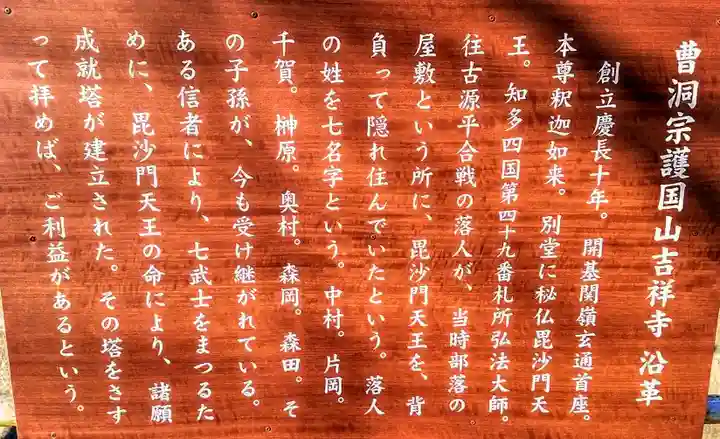 曹洞宗護国山吉祥寺 沿革
創立慶長十年。 開基関嶺玄通首座。
本尊釈迦如来。 別堂に秘仏毘沙門天
王。 知多四国第四十九番札所弘法大師。
往古源平合戦の落人が、当時部落の
屋敷という所に、毘沙門天王を、背
負って隠れ住んでいたという。落人
の姓を七名字という。中村。片岡。
千賀。榊原。奥村。森岡。森田。そ
の子孫が、今も受け継がれている。
ある信者により、七武士をまつるた
めに、毘沙門天王の命により、諸願
成就塔が建立された。その塔をさす
って拝めば、ご利益があるという。